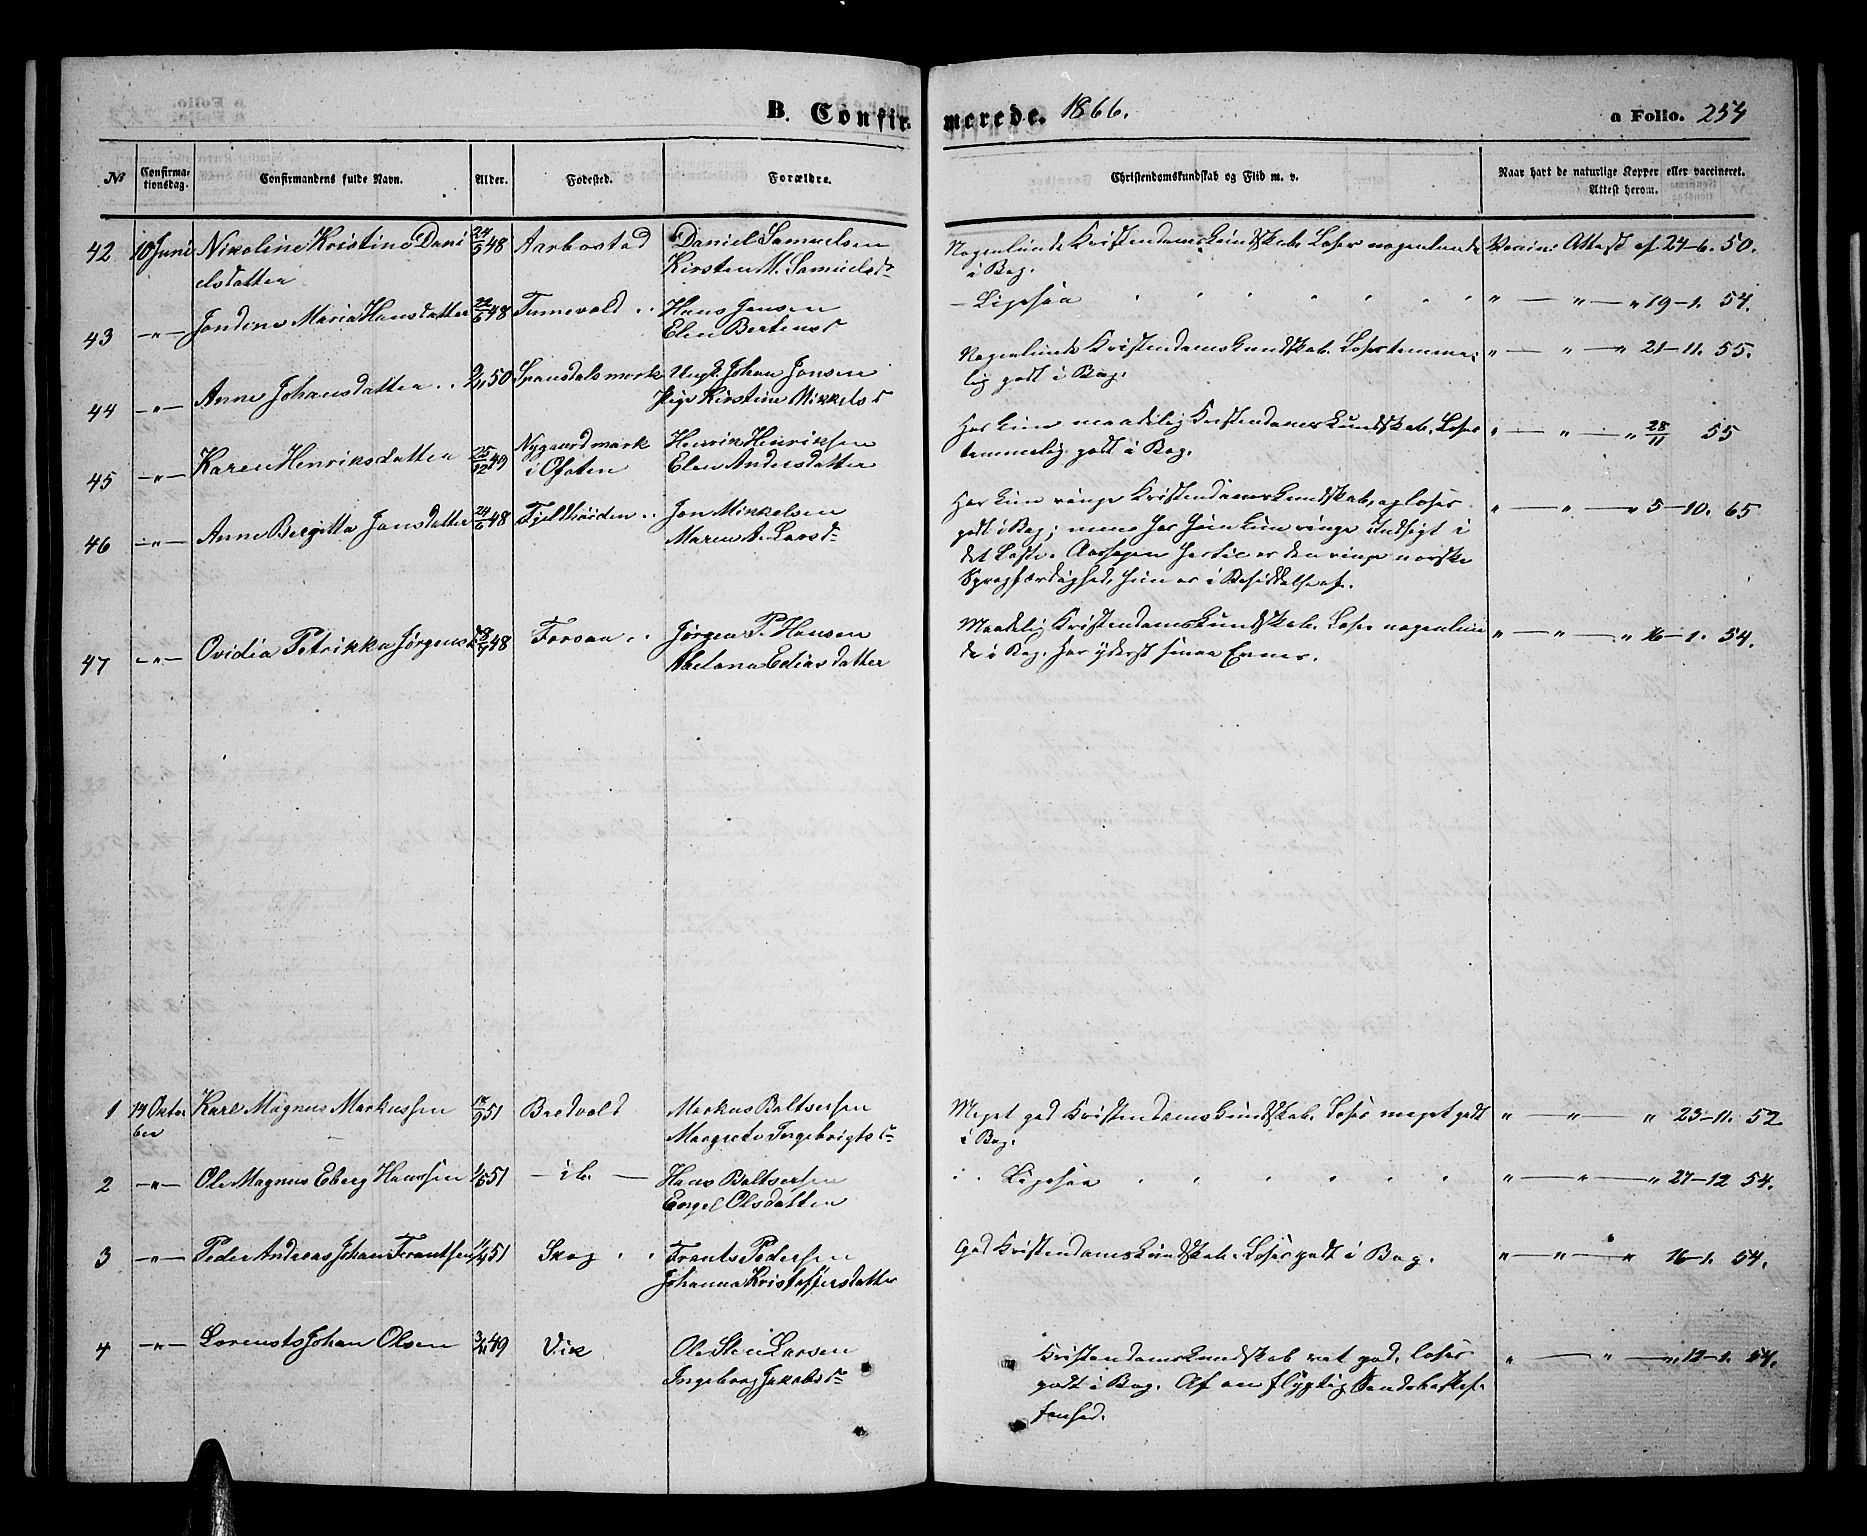 B. Confirmerede. 1866. a Folio. 254
No Confirmationsdag. Confirmandens fulde Navn. Alder. Fødested. Forældre. Christendomskundskab og Flid m. v. Naar havt de naturlige Kopper eller vaccineret. Attest herom.
42 10 Juni Nikoline Kristine Dani 24/5 48 Aarbostad Daniel Samuelsen Nogenlunde Kristendomskundskab. Læser nogenlunde Vaccine Attest af 24-6. 50.
elsdatter Kirsten M. Samuelsdr i Bog.
43 -"- Jondine Maria Hansdatter 22/6 48 Tennevold Hans Jensen - Ligesaa " — " — " 19-1. 54.
Elen Bertensd
44 -"- Anne Johansdatter 2/11 50 Spansdalsmark Ungk. Johan Jonsen Nogenlunde Kristendomskundskab. Læser temme- " — " — " 21-11. 55.
Pige Kirstine Mikkelsd lig godt i Bog.
45 -"- Karen Henriksdatter 25/12 49 Nygaardmark Henrik Henriksen Har kun maadelig Kristendomskundskab. Læser " — " — " 28/11 55
i Ofoten Elen Andersdatter temmelig godt i Bog.
46 -"- Anne Bergitta Jonsdatter 24/6 48 Fjeldhøiden Jon Mikkelsen Har kun ringe Kristendomskundskab, og læser " — " — " 5-10. 65
Maren A. Larsdr godt i Bog; mens har hun kun ringe Indsigt i
det Læste. Aarsagen hertil er den ringe norske
Sprogfærdighed, hun er i Besiddelse af.
47 -"- Ovidia Petrikka Jørgensd 48 Forsaa Jørgen P. Hansen Maadelig Kristendomskundskab. Læser nogenlun " — " — " 16-1. 54.
Abelona Eliasdatter de i Bog. Har yderst smaa Evner.
1 14 Okto Karl Magnus Markussen 18/9 51 Bredvold Markus Baltsersen Meget god Kristendomskundskab. Læser meget godt " " " 23-11. 52
ber Margrete Ingebrigtsdr i Bog.
2 -"- Ole Magnus Eberg Hanssen 1/5 51 - ib. - Hans Baltsersen Ligesaa " — " — " 27-12 54.
Engel Olsdatter
3 -"- Peder Andreas Johan Frantsen 51 Skog Frants Pedersen God Kristendomskundskab. Læser godt i Bog. " — " — " 16-1. 54.
Johanna Kristoffersdatter
4 -"- Lorents Johan Olsen 49 Vik Ole Steen Larsen Kristendomskundskab ret god, læser " — " — " 12-1. 54.
Ingeborg Jakobsdr godt i Bog. Af en flygtig Sindsbeskaf-
fenhed.